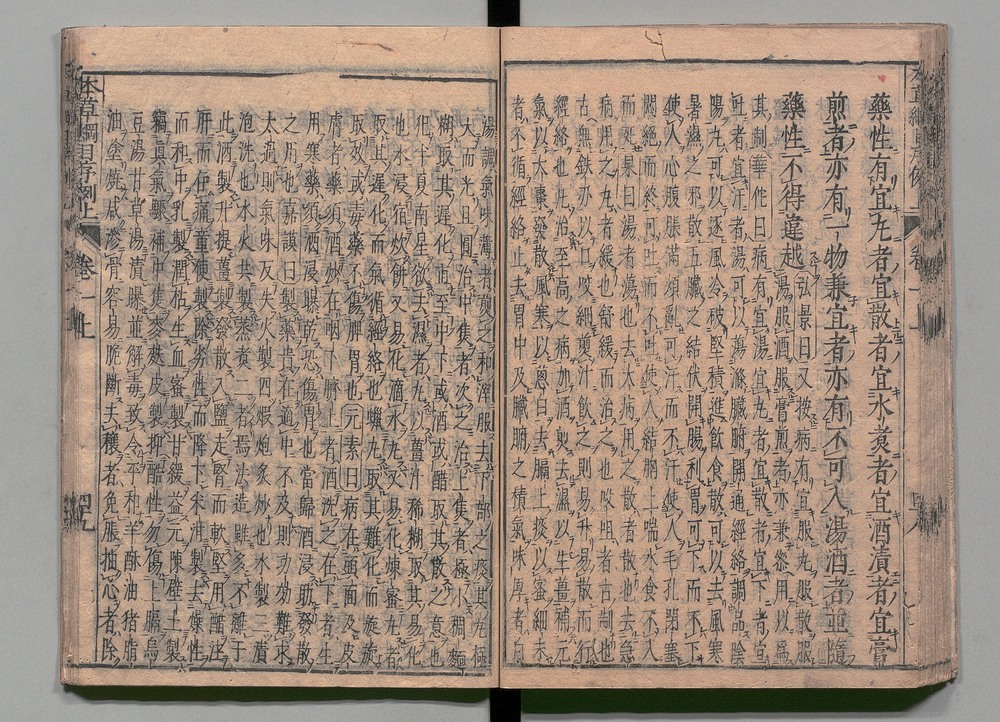 藥性有宜丸者宜散者宜水煮者宜酒漬者宜膏
煎者亦有一物兼宜者亦有不可入湯酒者並隨
藥性不得違越弘景曰又按病有宜服丸服散服
湯服酒服膏煎者亦兼參用以爲
其制華佗曰病有宜湯宜丸者宜散者宜下者宜
吐者宜汗者湯可以蕩滌臟腑開通經絡調品陰
陽丸可以逐風冷破堅積進飲食散可以去風寒
暑濕之邪散五臟之結伏開腸利胃可下而不下
使人心腹脹滿煩亂可汗而不汗使人毛孔閉塞
悶絕而終可吐而不可吐使人結胸上喘水食不入
而死杲曰湯者蕩也去大病用之散者散也去急
病用之丸者緩也舒緩而治之也㕮咀者古制也
古無鐵刃以口咬細煎汁飲之則易升易散而行
經絡也凡治至高之病加酒煎去濕以生薑補元
氣以大棗發散風寒以葱白去膈上痰以蜜細末
者不循經絡止去胃中及臟腑之積氣味厚者
湯調氣味薄者煎之和滓服去下部之痰其丸極
大而光且圓治中焦者次之治上焦者極小稠麵
糊取其遲化直至中下或酒或醋取其散之意也
化半夏南星欲去濕者丸以薑汁稀糊取其易化
也水浸宿炊餅又易化滴水丸又易化煉蜜丸者
取其遲化而氣循經絡也蠟丸取其難化而旋旋
取效或毒藥不傷脾胃也元素曰病在頭面及皮
膚者藥須酒炒在咽下臍上者酒洗之在下者生
用寒藥須酒浸曝乾恐傷胃也當歸酒浸助發散
之用也嘉謨曰製藥貴在適中不及則功効難求
太過則氣味反失火製四煅炮炙炒也水製三漬
泡洗也水火共製蒸煮二者焉法造雖多不離于
此酒製升提薑製發散入鹽走腎而軟堅用醋注
肝而住痛童便製除劣性而降下米泔製去燥性
而和中乳製潤枯生血蜜製甘緩益元陳壁土製
竊眞氣驟補中焦麥麩皮製抑酷性勿傷上膈烏
豆湯甘草湯漬曝並解毒致令平和羊酥油猪脂
油塗燒咸滲骨容易脆斷去穰者免脹抽心者除
本草綱目序例上
卷一上
四九